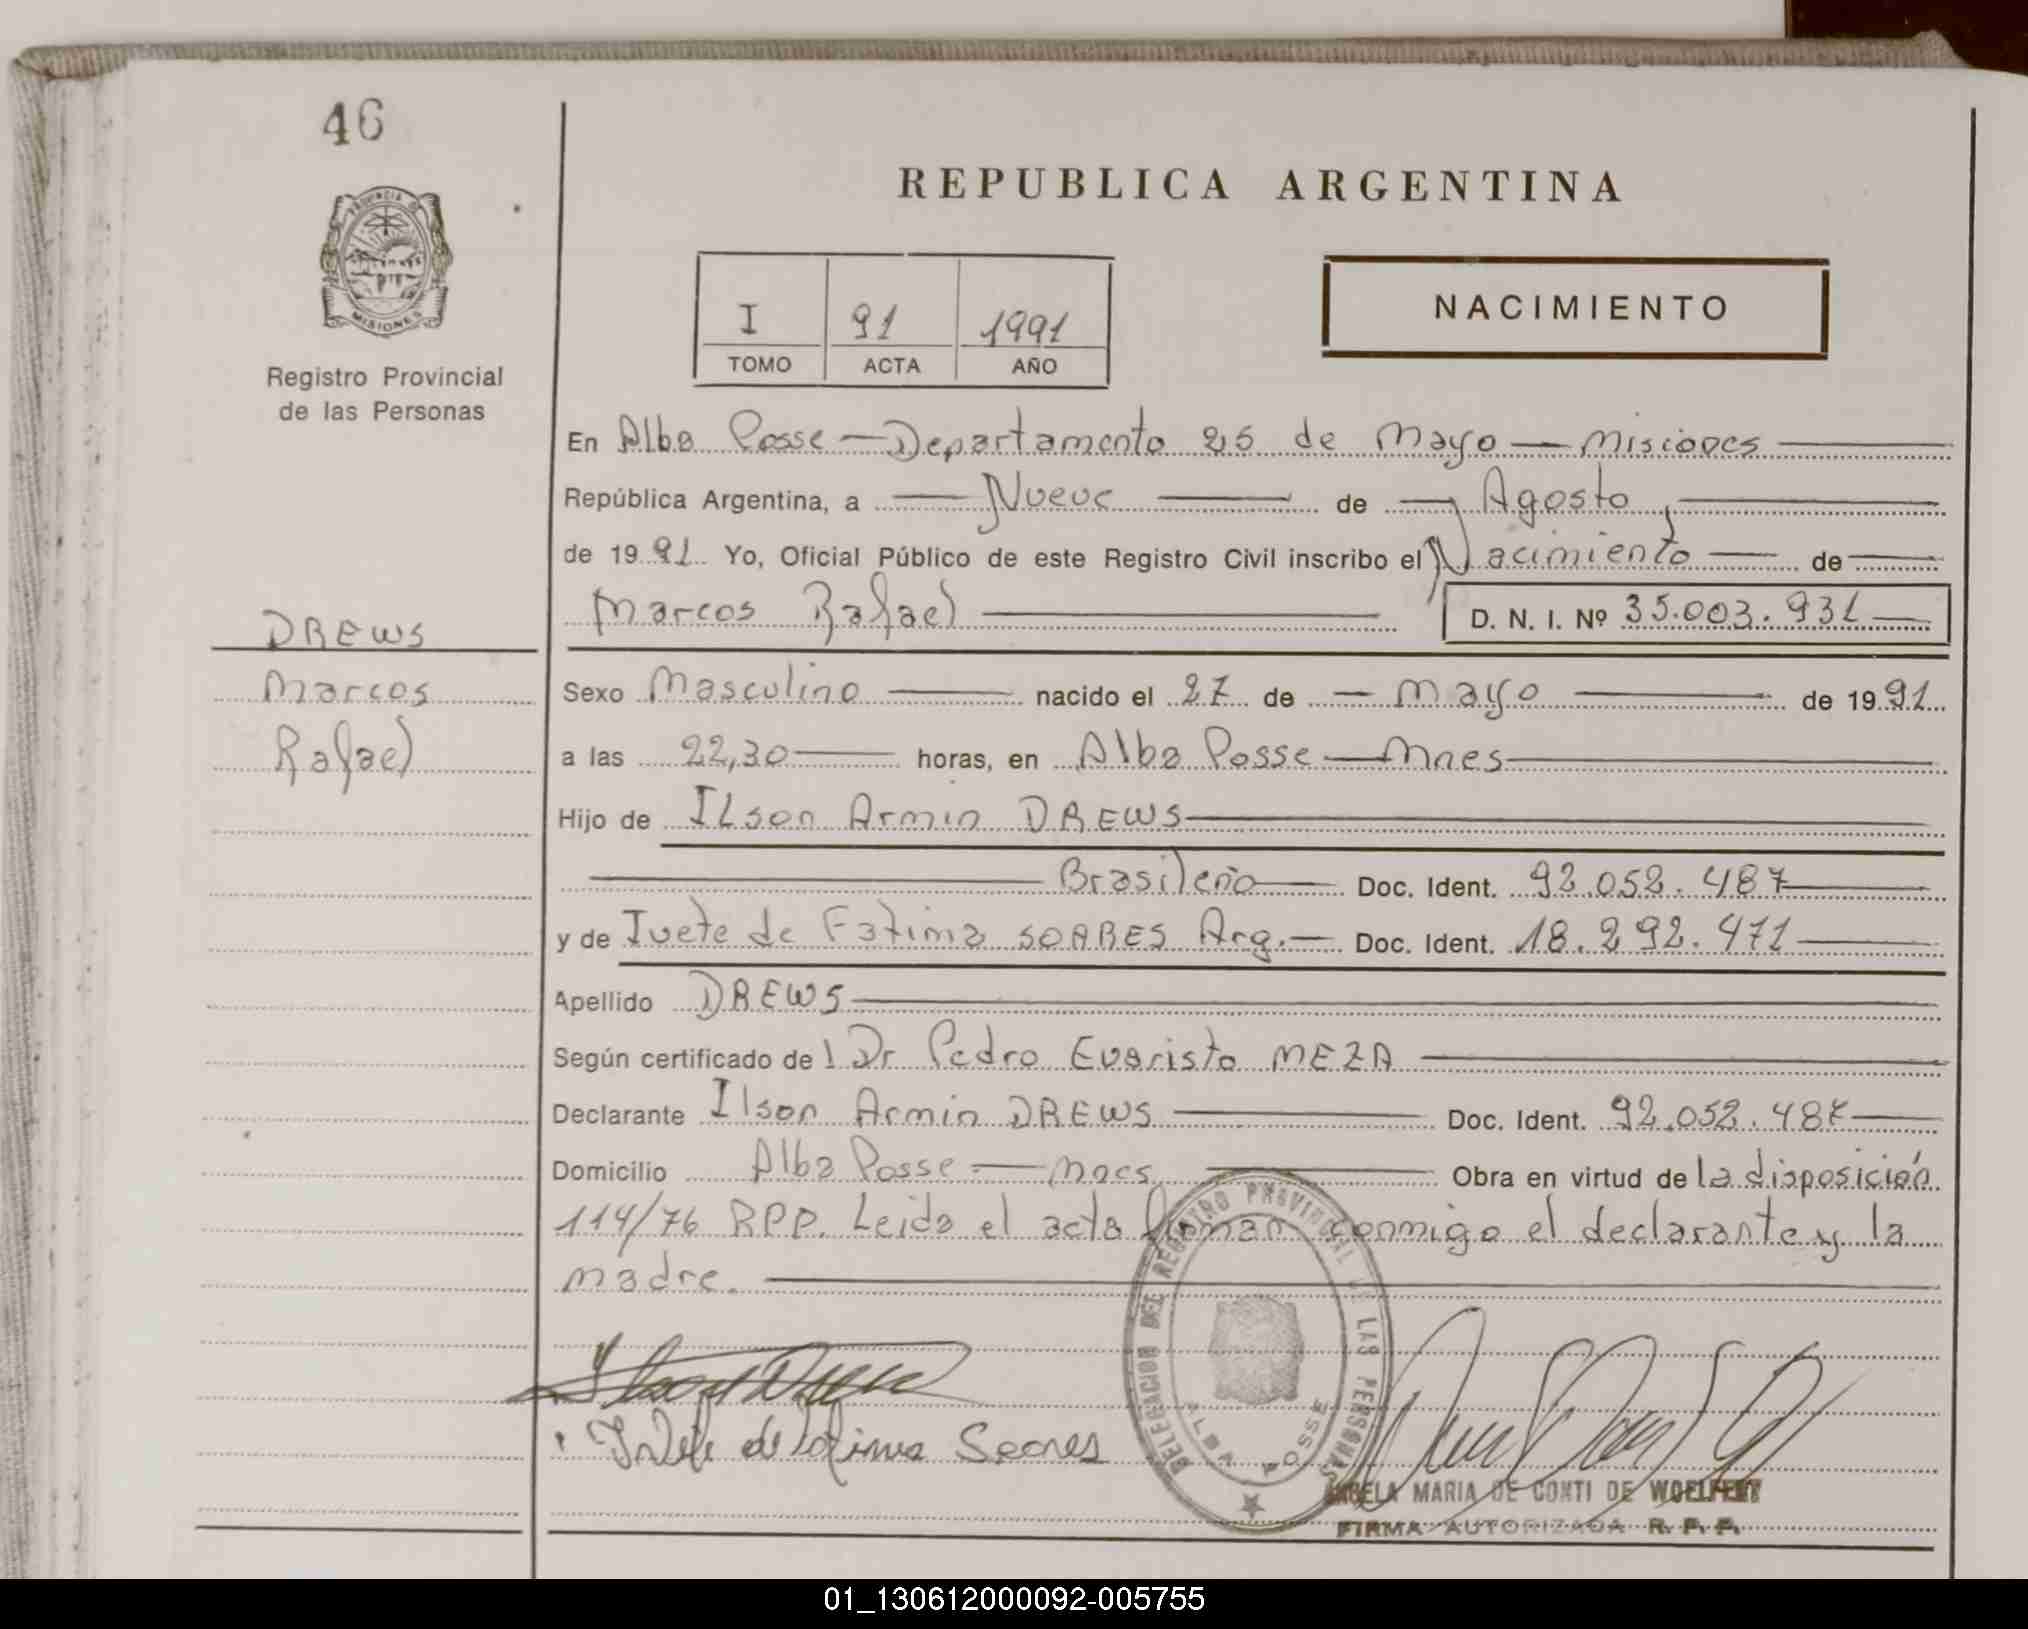 46
PROVINCIA DE
MISIONES
Registro Provincial
de las Personas
DREWS
Marcos
Rafael
REPUBLICA ARGENTINA
I 91 1991
TOMO ACTA AÑO
NACIMIENTO
En Alba Posse — Departamento 25 de Mayo — Misiones
República Argentina, a Nueve de Agosto
de 1991 Yo, Oficial Público de este Registro Civil inscribo el Nacimiento de
Marcos Rafael D. N. I. Nº 35.003.931
Sexo Masculino nacido el 27 de Mayo de 1991
a las 22,30 horas, en Alba Posse — Mnes
Hijo de Ilson Armin DREWS
Brasileño Doc. Ident. 92.052.487
y de Ivete de Fatima SOARES Arg. Doc. Ident. 18.292.471
Apellido DREWS
Según certificado de l Dr Pedro Evaristo MEZA
Declarante Ilson Armin DREWS Doc. Ident. 92.052.487
Domicilio Alba Posse — Mnes Obra en virtud de la disposición
114/76 RPP. Leida el acta firman conmigo el declarante y la
madre.
DELEGACION DEL REGISTRO PROVINCIAL DE LAS PERSONAS
ALBA POSSE
Ivete de Fatima Soares
ANGELA MARIA DE CONTI DE WOELFERT
FIRMA AUTORIZADA R. P. P.
01_130612000092-005755